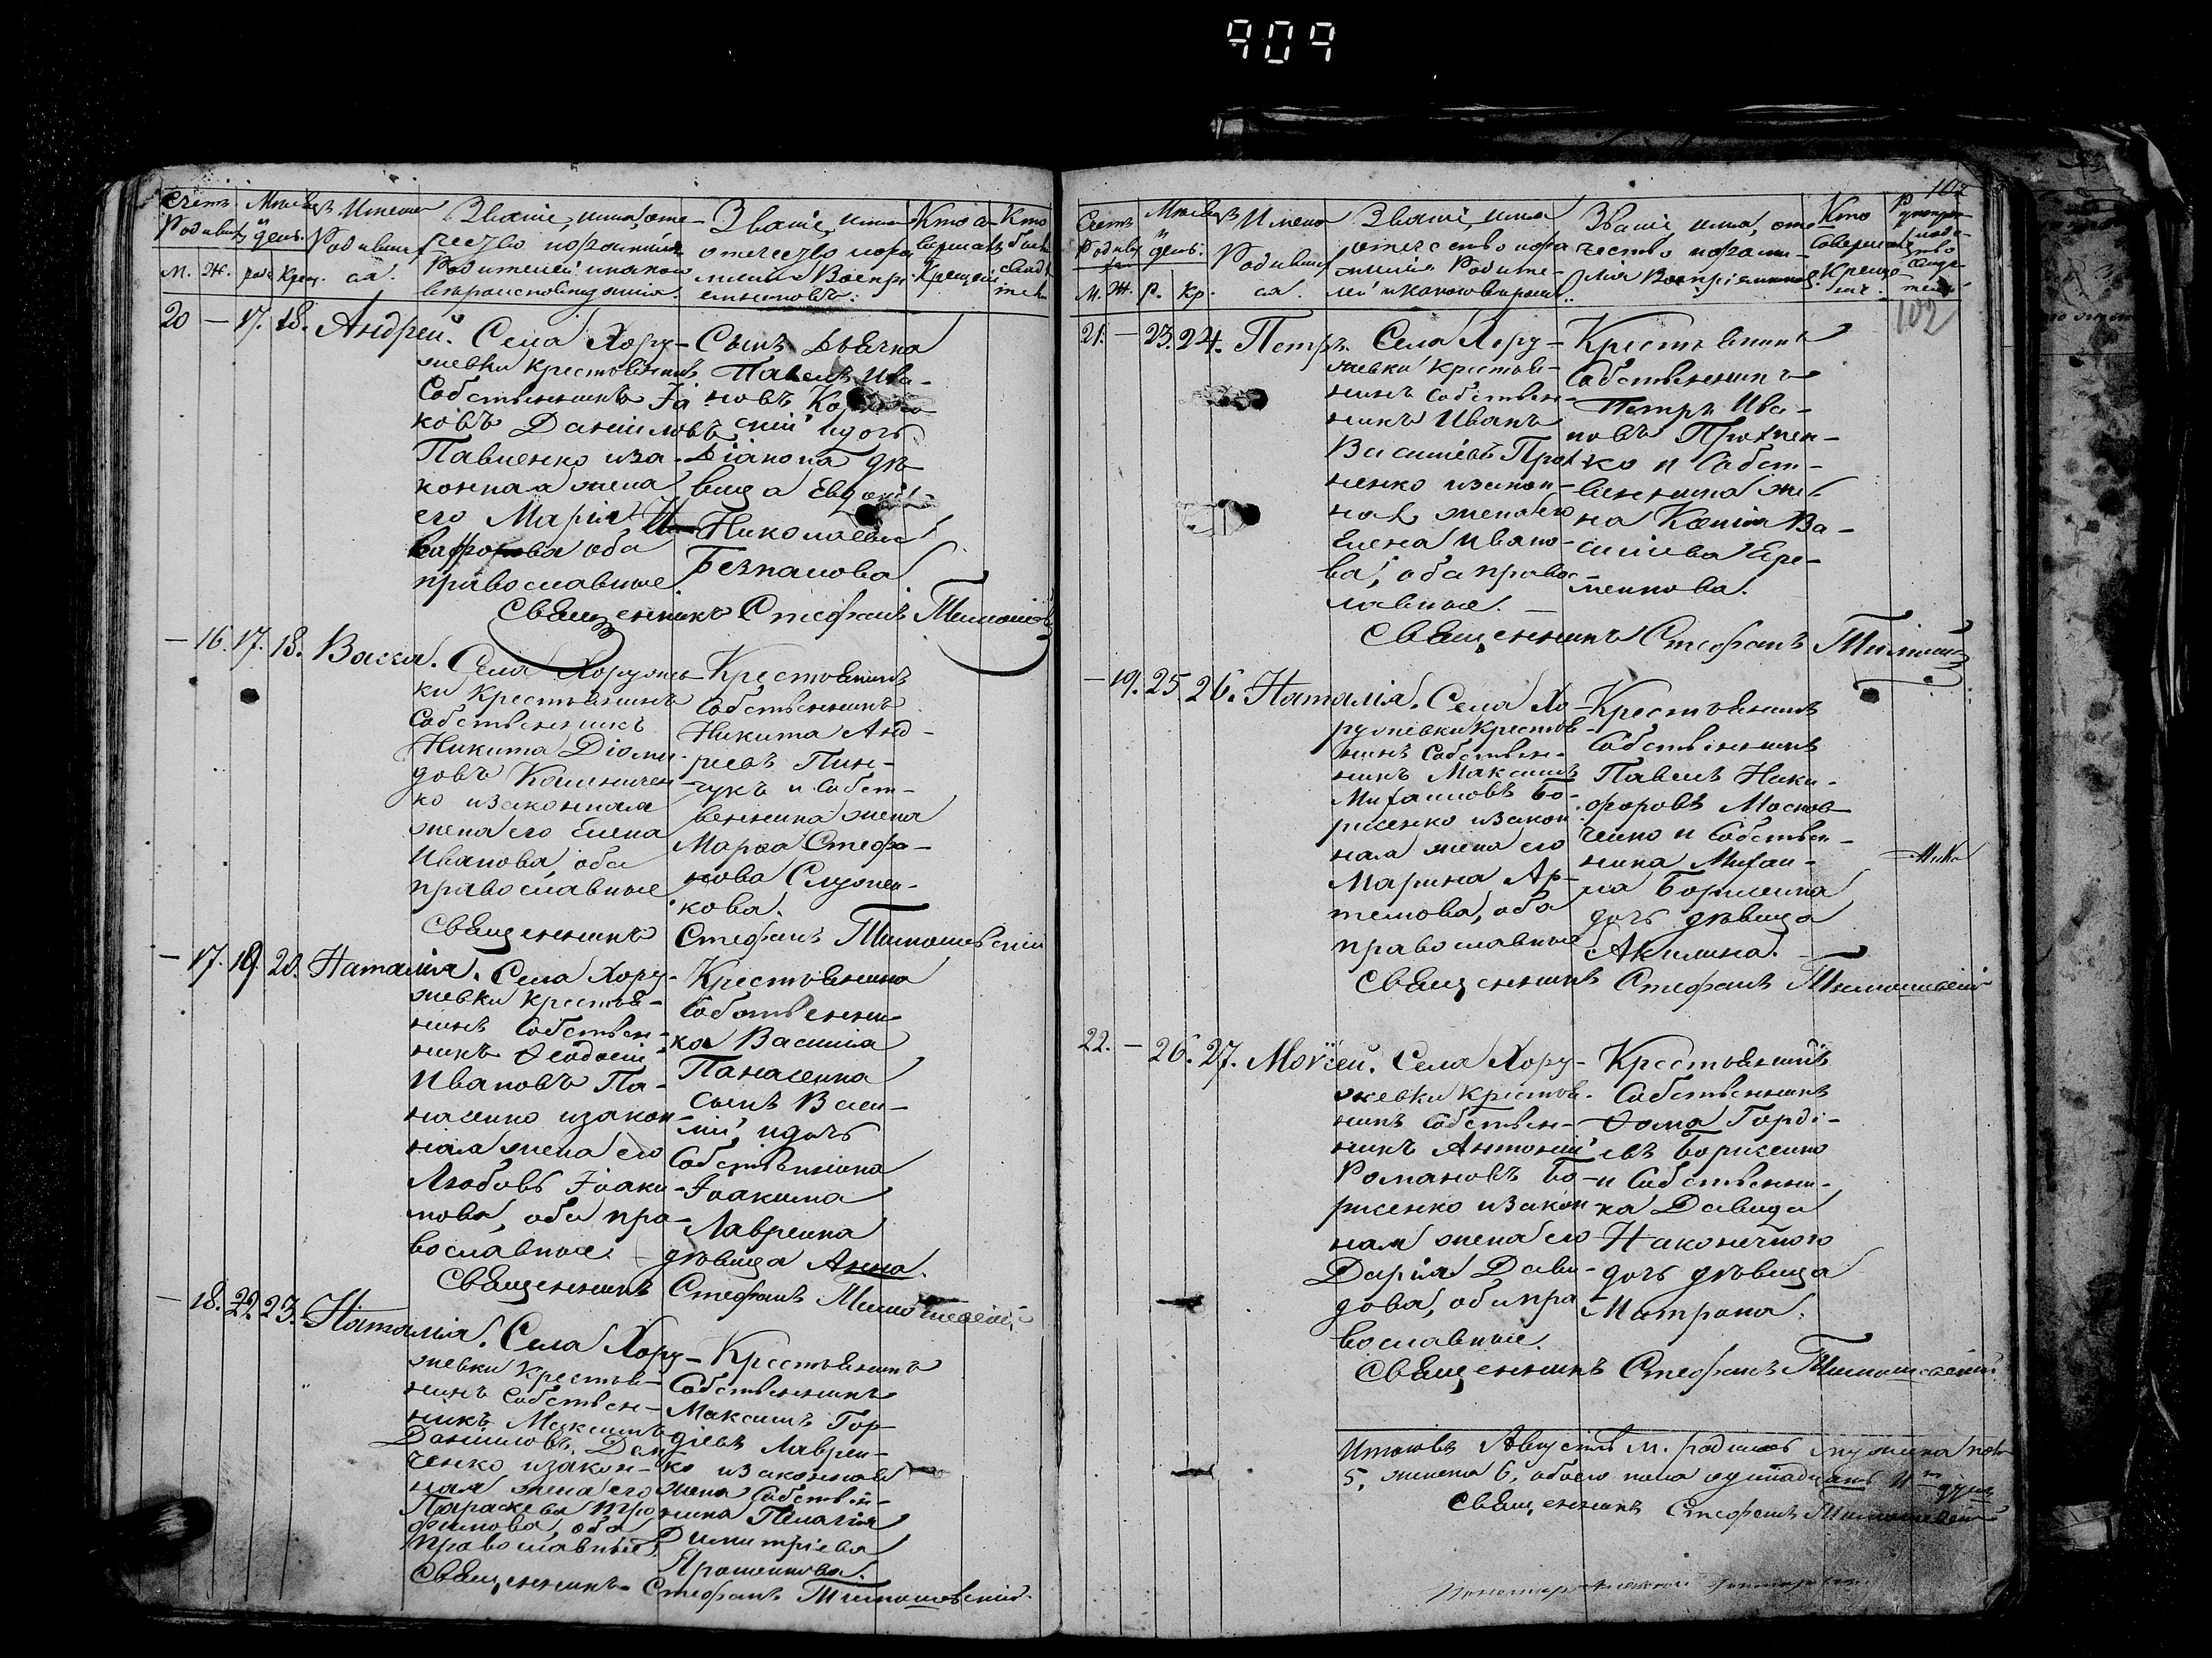 909
Счетъ
Родивш.
Мѣсяцъ
и день.
Имена
Родивших
ся.
Званіе, имя, оте-
чество и фамилія
Родителей и какого
вѣроисповѣданія.
Званіе, имя
отчество и фами
лія Воспрі
емниковъ.
Кто со-
вершалъ
Крещеніе
М. Ж. рож. Крещ.
20 — 17. 18. Андрей.
Села Хору-
жевки крестьянинъ
Собственникъ Іа
ковъ Даниловъ
Павленко и за-
конная жена
его Марія
оба
православные
Сынъ Дьячка
Павелъ Ива-
новъ
и дочь
Діакона дѣ-
вица
Николаева
Безпалова
Священникъ Стефанъ
— 16. 17. 18. Васса.
Села Хоружев
ки крестьянинъ
Собственникъ
Никита Діоми-
довъ Калиничен
ко и законная
жена его Елена
Иванова, оба
православные
Крестьянинъ
Собственникъ
Никита Анд-
реевъ Пин-
чукъ и Собст-
венника жена
Марѳа Стефа-
нова
кова.
Священникъ Стефанъ Тимошевскій
— 17. 19. 20. Наталія.
Села Хору-
жевки крестья-
нинъ Собствен-
никъ Ѳеодосій
Ивановъ Па-
насенко и закон
ная жена его
Любовь Іоаки-
мова, оба пра-
вославные.
Крестьянина
Собственни-
ка Василія
Панасенка
сынъ Васи-
лій, и дочь
Собственника
Іоакима
Лавренка
дѣвица Анна.
Священникъ Стефанъ Тимошевскій
— 18. 22. 23. Наталія.
Села Хору-
жевки Крестья-
нинъ Собствен-
никъ Максимъ
Даниловъ
ченко и закон-
ная жена его
Параскева Тро
фимова, оба
православные.
Крестьянинъ
Собственникъ
Максимъ Гор-
діевъ Лаврен-
ко и законная
жена Собствен-
ника Пелагія
Димитріева
Ярошенкова.
Священникъ Стефанъ Тимошевскій.
102
Счетъ
Родивш
Мѣсяцъ
и день.
Имена
Родивших
ся.
Званіе, имя
отечество и фа
милія Родите-
лей и какого вѣроисп.
Званіе, имя, оте
чество и фами-
лія Воспріемников.
Кто
совершалъ
Креще-
ніе.
М. Ж. Р. Кр.
102
21. — 23. 24. Петръ.
Села Хору-
жевки крестья-
нинъ Собствен-
никъ Иванъ
Васильевъ
ненко и закон-
ная жена его
Елена Ивано-
ва, оба правос-
лавные.
Крестьянинъ
Собственникъ
Петръ Ива-
новъ
ко и Собст-
венника же-
на Ксенія Ва-
силіева Ере-
менкова.
Священникъ Стефанъ
— 19. 25. 26. Наталія.
Села Хо-
ружевки Крестья-
нинъ Собствен-
никъ Максимъ
Михаиловъ Бо-
рисенко и закон
ная жена его
Марина Ар-
темова, оба
православные
Крестьянинъ
Собственникъ
Павелъ Ники-
форовъ Москов
ченко и Собствен-
ника Михаи-
ла Борисенка
дочь дѣвица
Акилина.
Священникъ Стефанъ Тимошевскій
22. — 26. 27. Моѵсей.
Села Хору-
жевки крестья-
нинъ Собствен-
никъ Антоній
Романовъ Бо-
рисенко и закон-
ная жена его
Дарія Дави-
дова, оба пра
вославные.
Крестьянинъ
Собственникъ
Ѳома Горді-
евъ Борисенко
и Собственни-
ка Давида
Наконечного
дочь дѣвица
Матрона.
Священникъ Стефанъ Тимошевскій.
Итого въ Августѣ м. родилось мужеска пола
5, женска 6, обоего пола одинадцать 11 душъ
Священникъ Стефанъ Тимошевскій